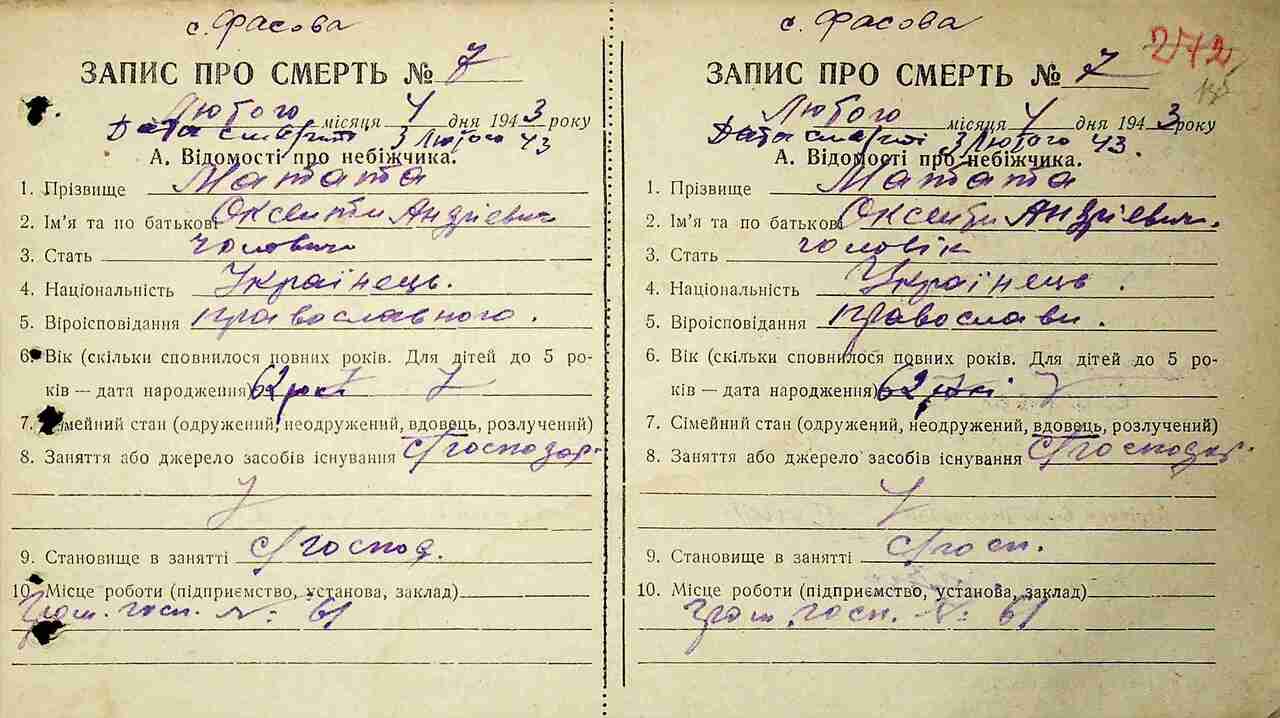 с. Фасова
ЗАПИС ПРО СМЕРТЬ № 7
Лютого місяця 4 дня 1943 року
Дата смерти 3 Лютого 43
А. Відомості про небіжчика.
1. Прізвище Матата
2. Ім'я та по батькові Оксентий Андрієвич
3. Стать чоловіч
4. Національність Українець.
5. Віроісповідання православного.
6. Вік (скільки сповнилося повних років. Для дітей до 5 ро-
ків — дата народження) 62 рокі
7. Сімейний стан (одружений, неодружений, вдовець, розлучений)
8. Заняття або джерело засобів існування с/господар.
9. Становище в занятті с/господ.
10. Місце роботи (підприємство, установа, заклад)
Гром. госп. №: 61
с. Фасова
272
ЗАПИС ПРО СМЕРТЬ № 7
Лютого місяця 4 дня 1943 року
Дата смерті 3 Лютого 43.
А. Відомості про небіжчика.
1. Прізвище Матата
2. Ім'я та по батькові Оксентий Андрієвич.
3. Стать чоловік
4. Національність Українець.
5. Віроісповідання православ.
6. Вік (скільки сповнилося повних років. Для дітей до 5 ро-
ків — дата народження) 62 рокі
7. Сімейний стан (одружений, неодружений, вдовець, розлучений)
8. Заняття або джерело засобів існування с/господар.
9. Становище в занятті с/госп.
10. Місце роботи (підприємство, установа, заклад)
Гром. госп. №: 61